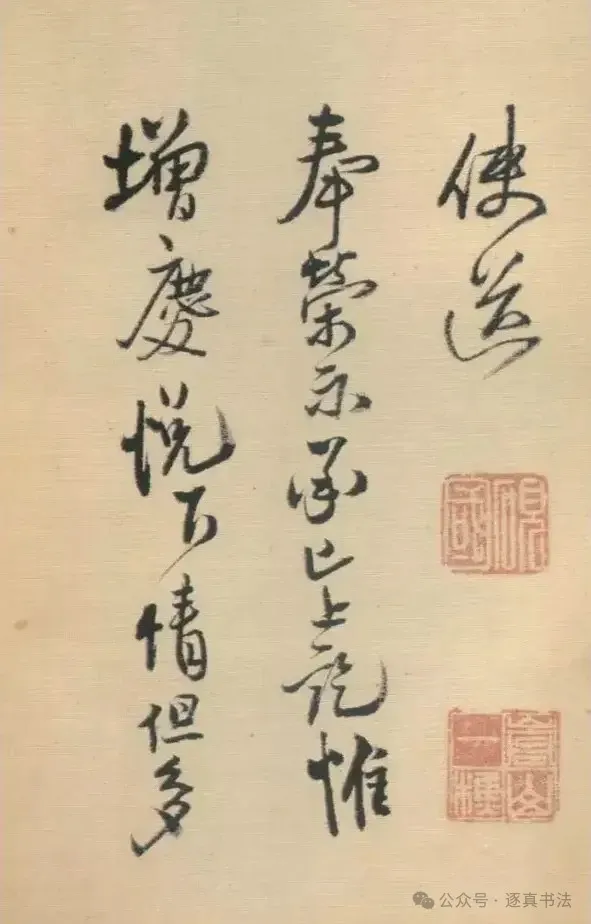 使送
奉榮示承已上訖惟
增慶悅下情但多
公众号 · 逐真书法